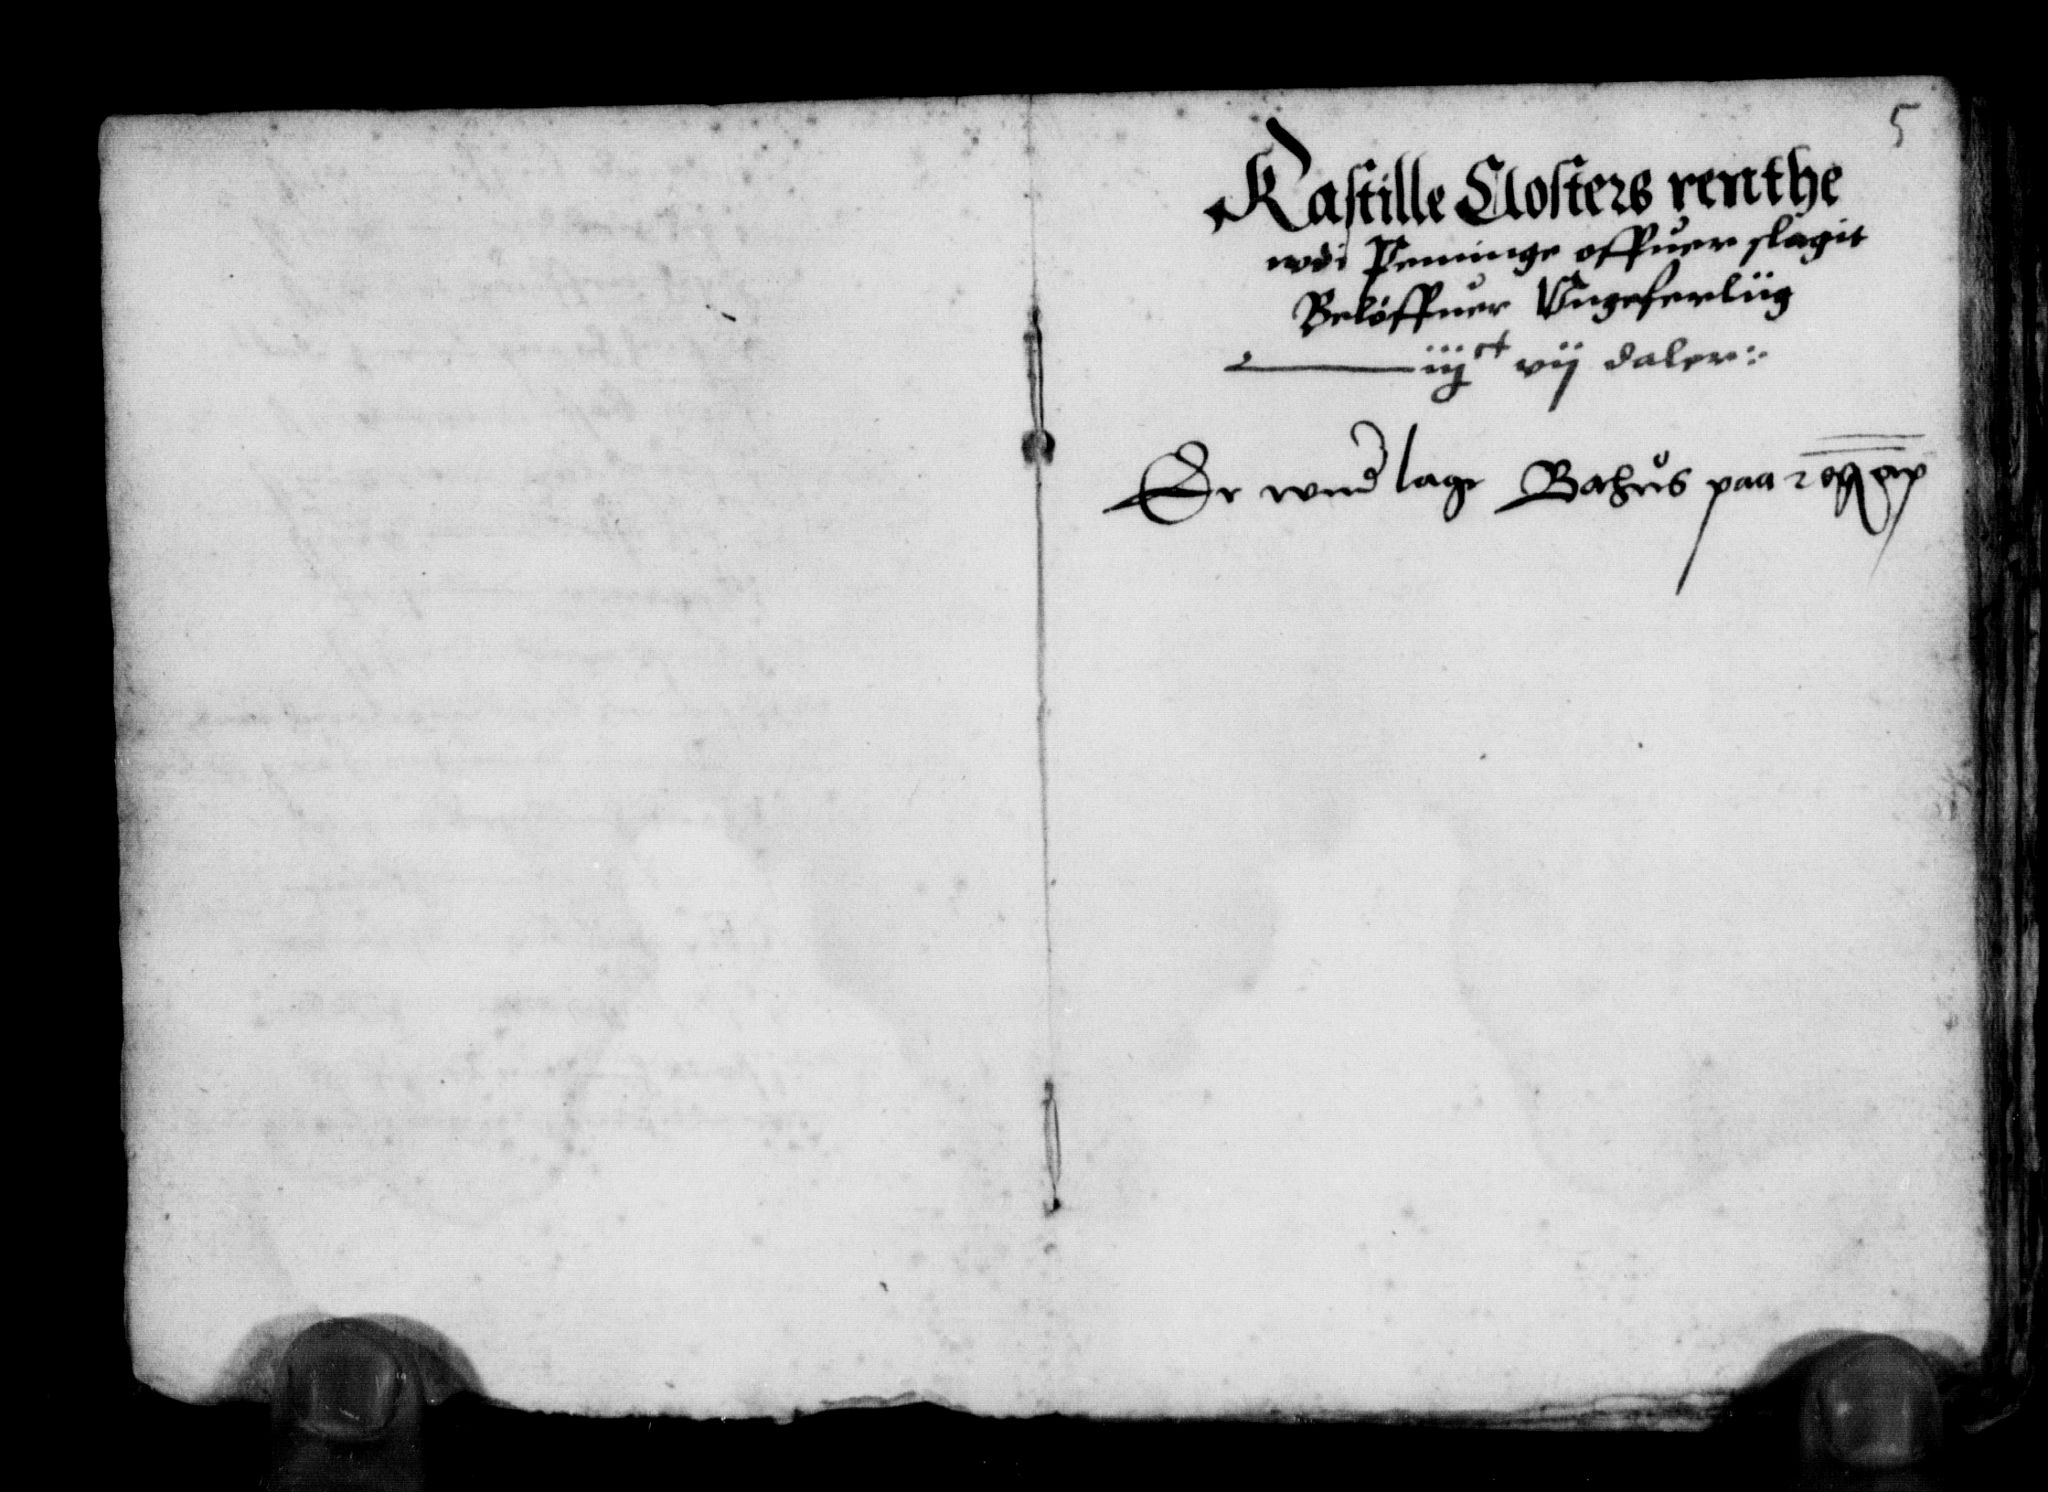 5
Kastille Closters renthe
wdi Peninnge offuer slagit
Beløffuer Vngeferlüg
iiijct vij daler
Er wnd lage Bahus paa